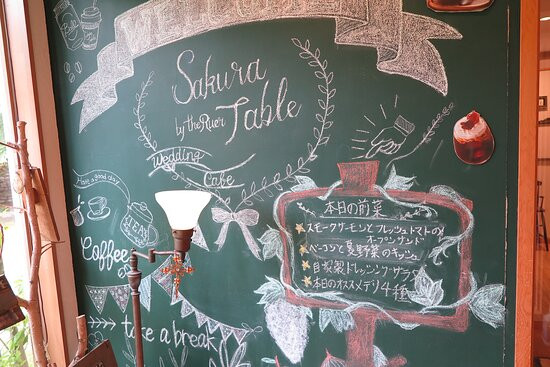 WELCOME
Sakura
by the River
Table
Wedding
Cafe
Have a good day
TEA
Coffee
take a break
本日の前菜
スモークサーモンとフレッシュトマトの
オープンサンド
ベーコンと夏野菜のキッシュ
自家製ドレッシングサラダ
本日のオススメデリ4種